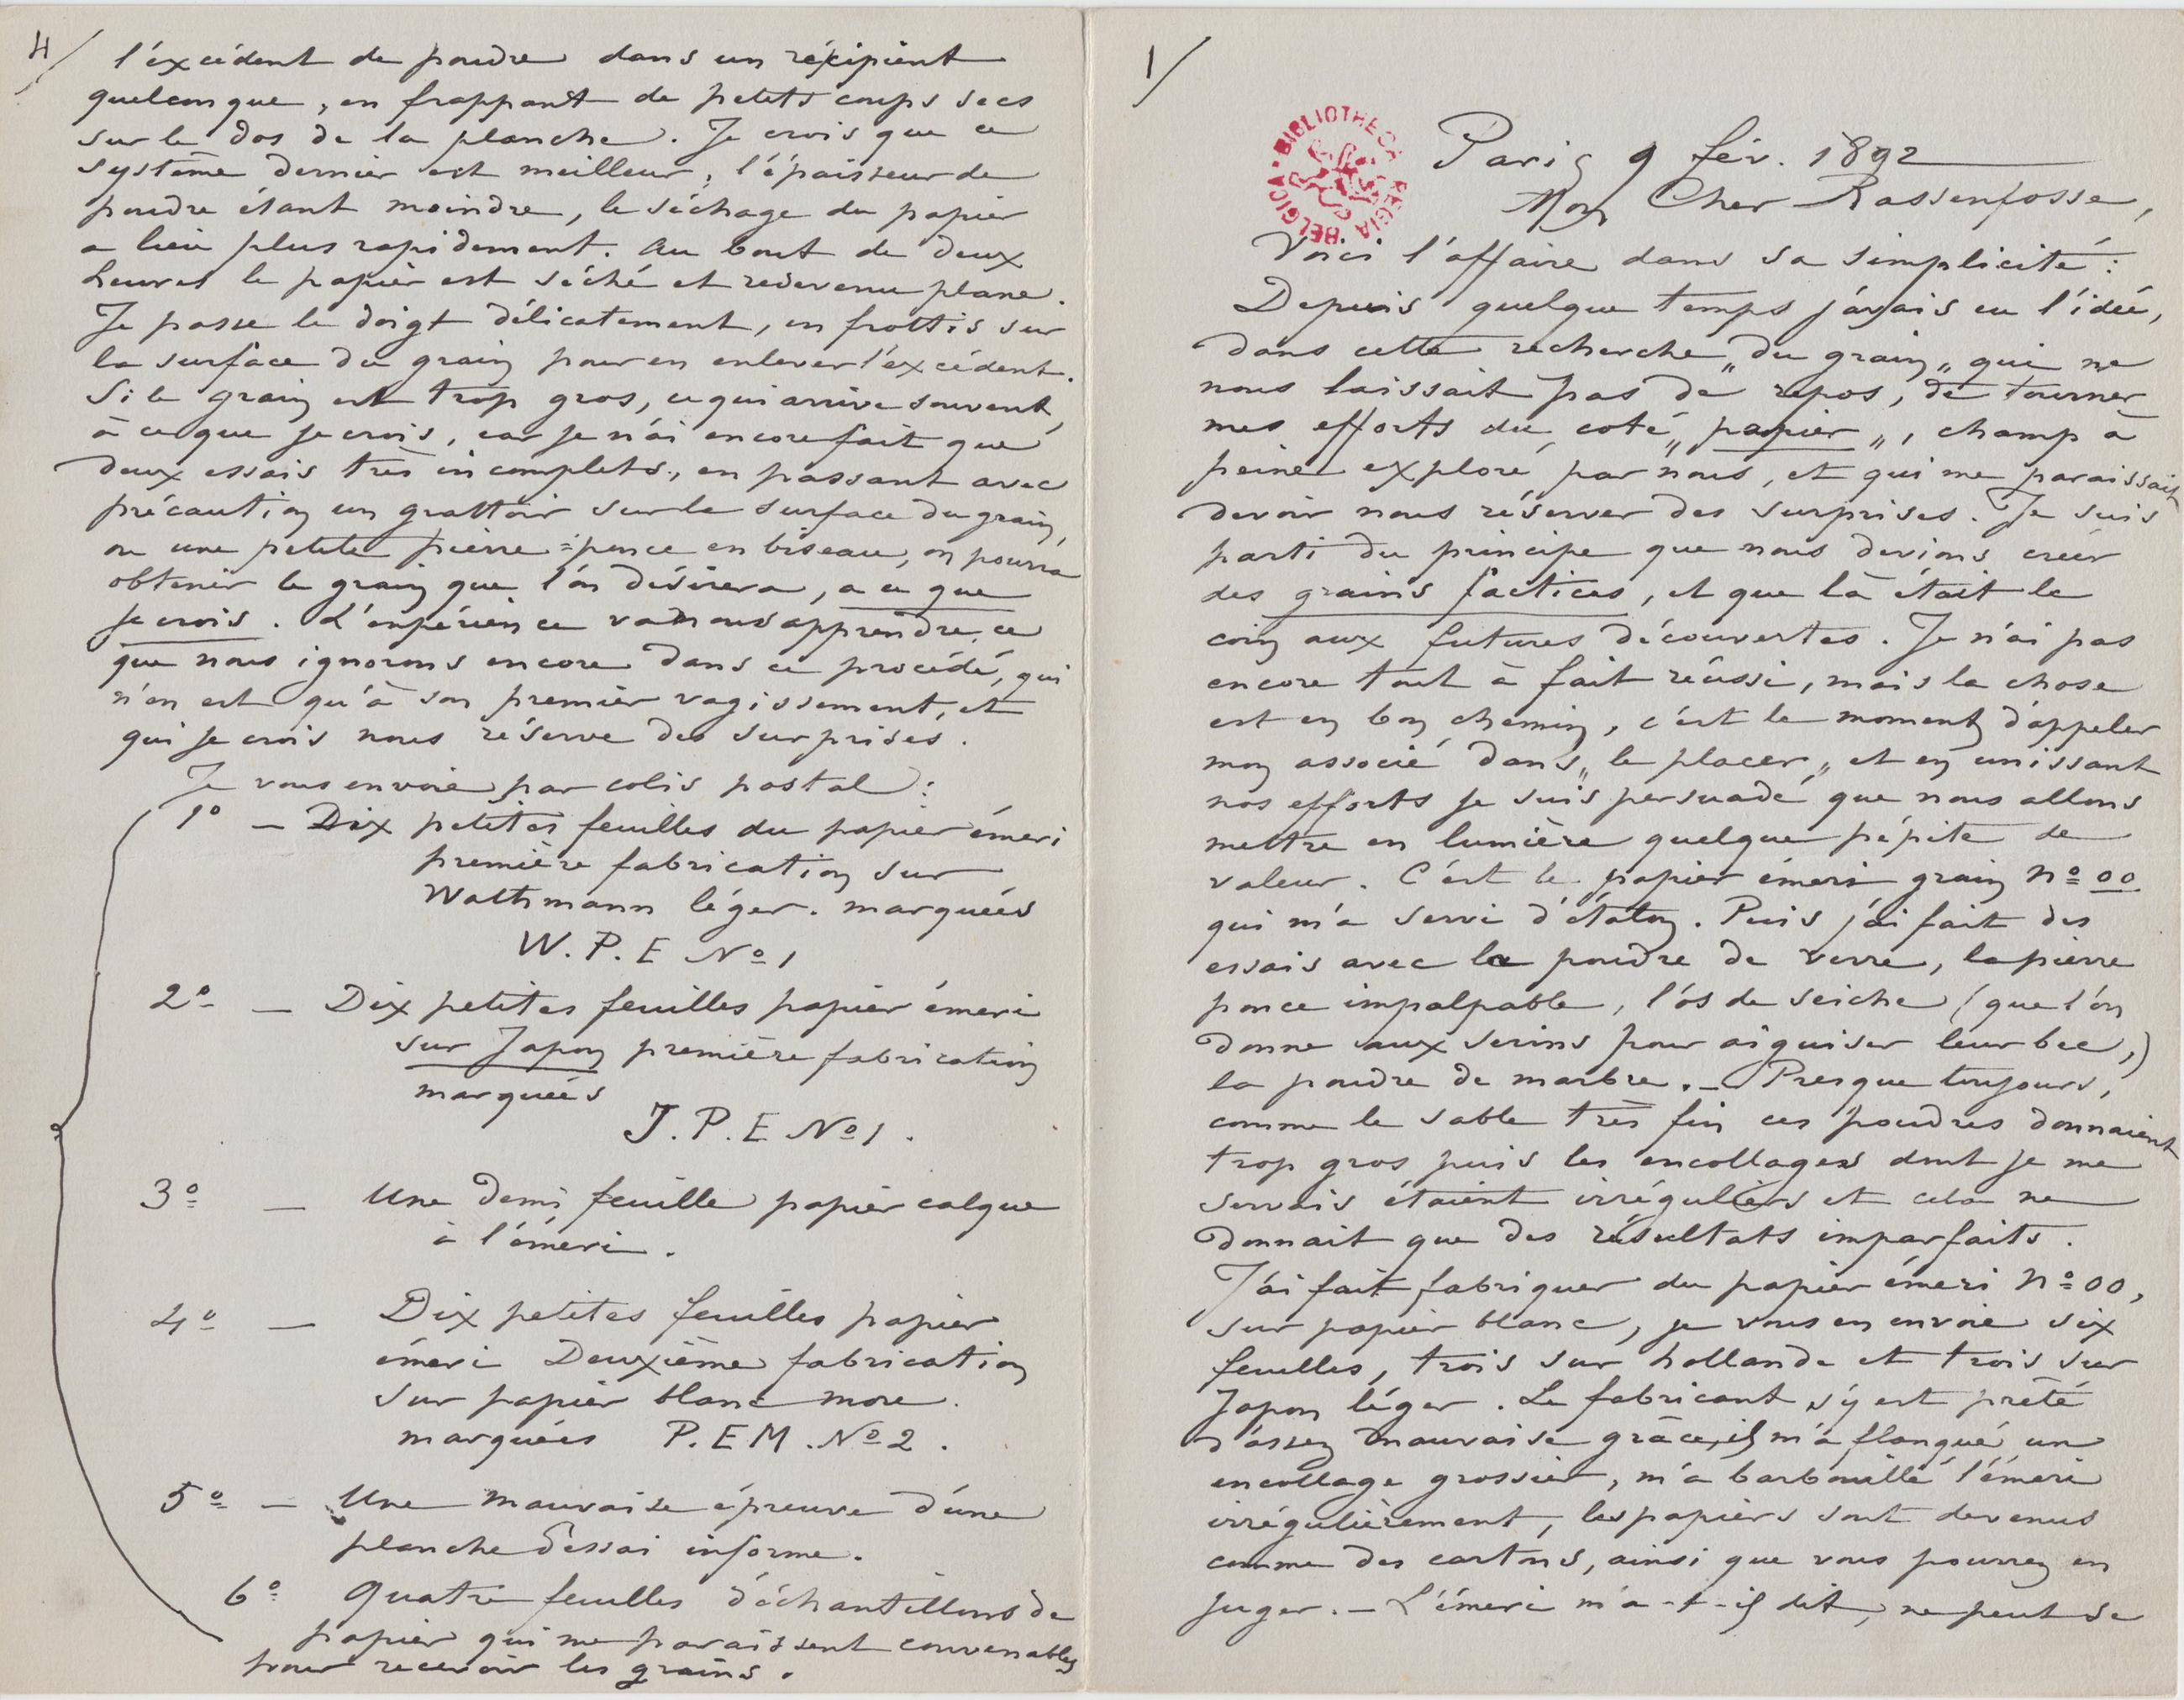 4/
l'éxcédent de poudre dans un récipient
quelconque, en frappant de petits coups secs
sur le dos de la planche. Je crois que ce
système dernier est meilleur, l'épaisseur de
poudre étant moindre, le séchage du papier
a lieu plus rapidement. Au bout de deux
heures le papier est séché et redevenu plane.
Je passe le doigt délicatement, en frottis sur
la surface du grain pour en enlever l'excédent.
Si le grain est trop gros, ce qui arrive souvent,
à ce que je crois, car je n'ai encore fait que
deux essais très incomplets, en passant avec
précaution un grattoir sur la surface du grain,
ou une petite pierre-ponce en biseau, on pourra
obtenir le grain que l'on désirera, a ce que
je crois. L'expérience va nous apprendre ce
que nous ignorons encore dans ce procédé, qui
n'en est qu'à son premier vagissement, et
qui je crois nous réserve des surprises.
Je vous envoie par colis postal :
1º — Dix petites feuilles du papier émeri
première fabrication sur
Wathmann léger. marquées
W. P. E Nº 1
2º — Dix petites feuilles papier émeri
sur Japon première fabrication
marquées
J. P. E Nº 1.
3º — Une demi feuille papier calque
à l'émeri.
4º — Dix petites feuilles papier
émeri Deuxième fabrication
sur papier blanc more.
marquées P. E M. Nº 2.
5º — Une mauvaise épreuve d'une
planche d'essai informe.
6º Quatre feuilles d'échantillons de
papier qui me paraissent convenables
pour recevoir les grains.
1/
BIBLIOTHECA REGIA BELGICA
Paris 9 fév. 1892
Mon Cher Rassenfosse,
Voici l'affaire dans sa simplicité :
Depuis quelque temps j'avais eu l'idée,
dans cette recherche „du grain„ qui ne
nous laissait pas de repos, de tourner
mes efforts du coté „papier„, champ à
peine exploré par nous, et qui me paraissait
devoir nous réserver des surprises. Je suis
parti du principe que nous devions créer
des grains factices, et que là était le
coin aux futures découvertes. Je n'ai pas
encore tout à fait réussi, mais la chose
est en bon chemin, c'est le moment d'appeler
mon associé dans „le placer„ et en unissant
nos efforts je suis persuadé que nous allons
mettre en lumière quelque pépite de
valeur. C'est le papier émeri grain nº 00
qui m'a servi d'étalon. Puis j'ai fait des
essais avec la poudre de verre, la pierre
ponce impalpable, l'os de seiche (que l'on
donne aux serins pour aiguiser leur bec,)
la poudre de marbre. — Presque toujours,
comme le sable très fin ces poudres donnaient
trop gros puis les encollages dont je me
servais étaient irréguliers et cela ne
donnait que des résultats imparfaits.
J'ai fait fabriquer du papier émeri nº 00,
sur papier blanc, je vous en envoie six
feuilles, trois sur hollande et trois sur
Japon léger. Le fabricant s'y est prêté
d'assez mauvaise grâce, il m'a flanqué un
encollage grossier, m'a barbouillé l'émeri
irrégulièrement, les papiers sont devenus
comme des cartons, ainsi que vous pourrez en
juger. — L'émeri m'a-t-il dit, ne peut se